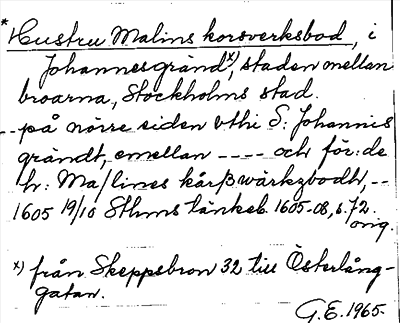 * Hustru Malins korsverksbod, i
Johannesgränd x), staden mellan
broarna, Stockholms stad.
-- på nörre siden vthi S: Johannis
grändt, emellan ---- och för:de
h: Ma/lines kårßwärkzbodh, --
1605 19/10 Sthms tänkeb. 1605-08, s. 72.
orig.
x) från Skeppsbron 32 till Österlång-
gatan.
G.E. 1965.